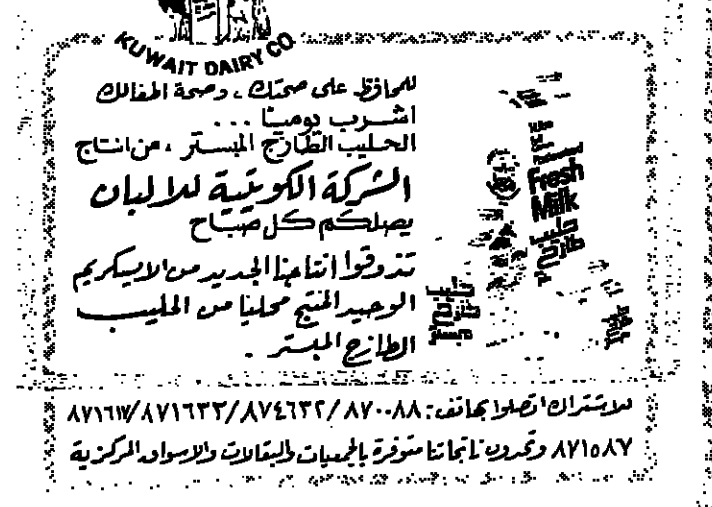 KUWAIT DAIRY CO.
للحافظ على صحتك ، وصحة اطفالك
اشرب يوميًا ...
الحليب الطازج المبستر ، من انتاج
الشركة الكويتية للالبان
يصلكم كل صباح
تذوقوا انتاجنا الجديد من الايسكريم
الوحيد المنتج محليا من الحليب
الطازج المبستر .
Fresh
Milk
حليب
طازج
حليب
طازج
مبستر
للاشتراك اتصلوا بهاتف : ٨٧٠٠٨٨ / ٨٧٤٦٣٢ / ٨٧١٦٣٢ / ٨٧١٦١٧
٨٧١٥٨٧ وتجدون انتاجاتنا متوفرة بالجمعيات والبقالات والاسواق المركزية